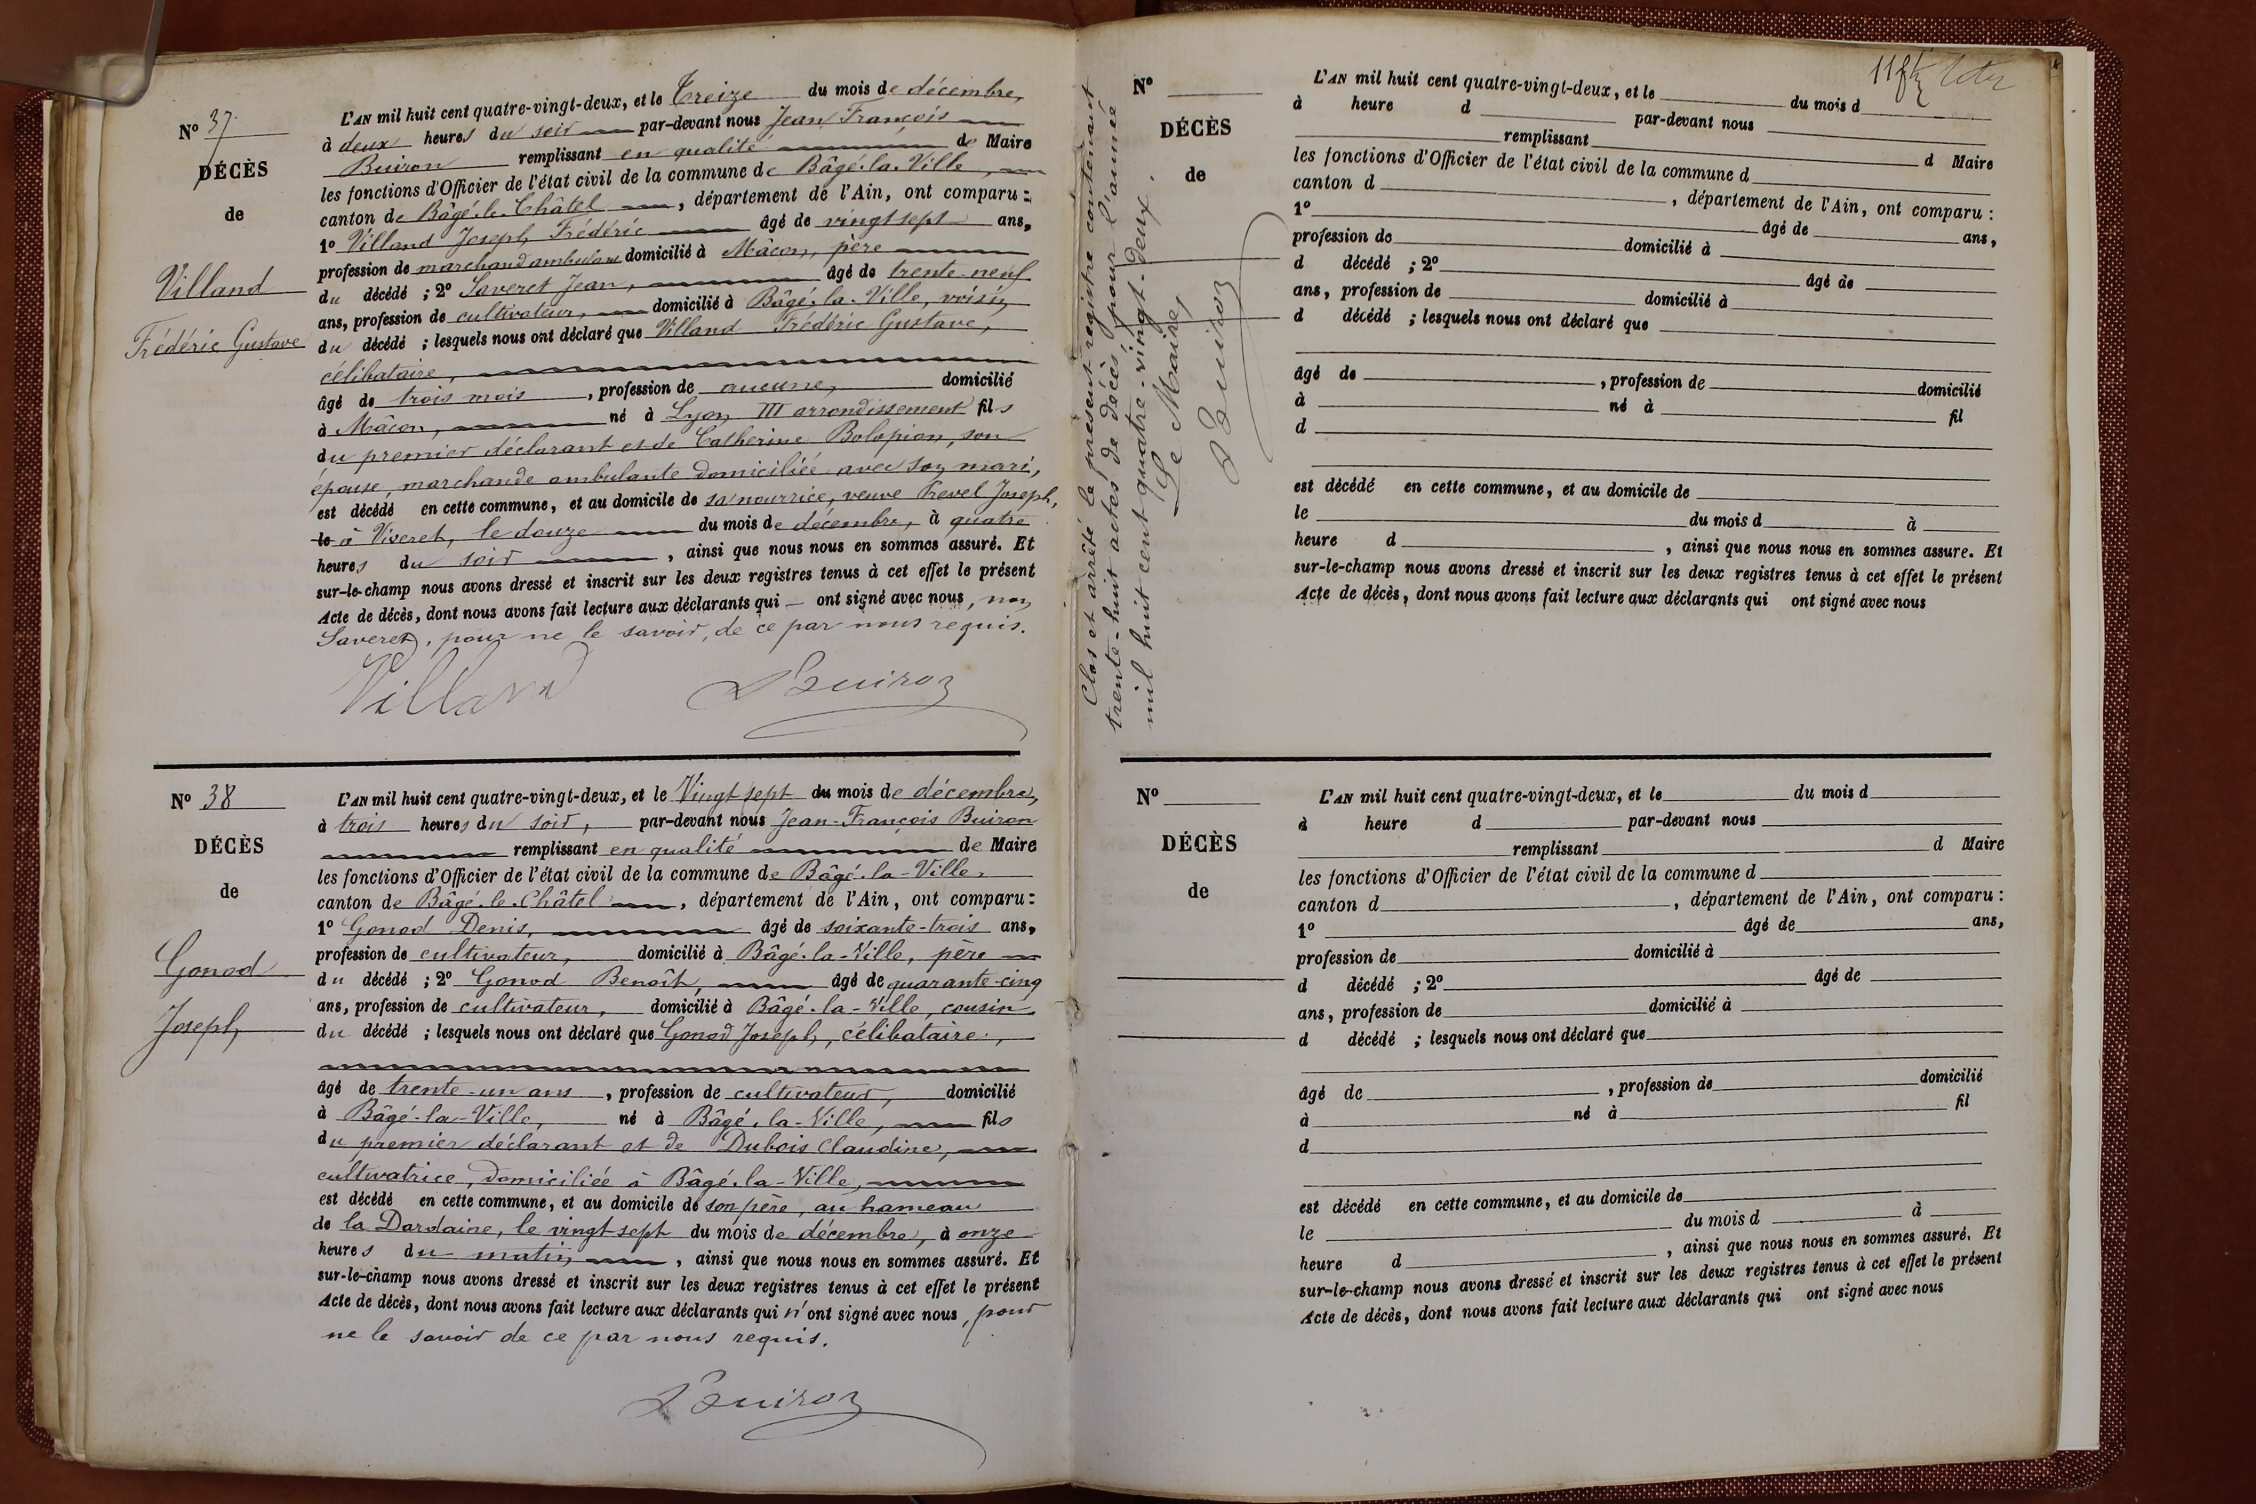 N° 37
DÉCÈS
de
Villand
Frédéric Gustave
L'AN mil huit cent quatre-vingt-deux, et le Treize du mois de décembre,
à deux heures du soir par-devant nous Jean François
Buiron remplissant en qualité de Maire
les fonctions d'Officier de l'état civil de la commune de Bâgé-la-Ville,
canton de Bâgé-le-Châtel, département de l'Ain, ont comparu :
1° Villand Joseph Frédéric âgé de vingt sept ans,
profession de marchand ambulant domicilié à Mâcon, père
du décédé ; 2° Saveret Jean, âgé de trente-neuf
ans, profession de cultivateur, domicilié à Bâgé-la-Ville, voisin
du décédé ; lesquels nous ont déclaré que Villand Frédéric Gustave,
célibataire,
âgé de trois mois, profession de aucune, domicilié
à Mâcon, né à Lyon III arrondissement fils
du premier déclarant et de Catherine Bolopion, son
épouse, marchande ambulante domiciliée avec son mari,
est décédé en cette commune, et au domicile de sa nourrice, veuve Prevel Joseph,
le à Viseret, le douze du mois de décembre, à quatre
heures du soir, ainsi que nous nous en sommes assuré. Et
sur-le-champ nous avons dressé et inscrit sur les deux registres tenus à cet effet le présent
Acte de décès, dont nous avons fait lecture aux déclarants qui — ont signé avec nous, non
Saveret, pour ne le savoir, de ce par nous requis.
Villand Buiron
N° 38
DÉCÈS
de
Gonod
Joseph
L'AN mil huit cent quatre-vingt-deux, et le Vingt sept du mois de décembre,
à trois heures du soir, par-devant nous Jean-François Buiron
remplissant en qualité de Maire
les fonctions d'Officier de l'état civil de la commune de Bâgé-la-Ville,
canton de Bâgé-le-Châtel, département de l'Ain, ont comparu :
1° Gonod Denis, âgé de soixante-trois ans,
profession de cultivateur, domicilié à Bâgé-la-Ville, père
du décédé ; 2° Gonod Benoît, âgé de quarante-cinq
ans, profession de cultivateur, domicilié à Bâgé-la-Ville, cousin
du décédé ; lesquels nous ont déclaré que Gonod Joseph, célibataire,
âgé de trente-un ans, profession de cultivateur, domicilié
à Bâgé-la-Ville, né à Bâgé-la-Ville, fils
du premier déclarant et de Dubois Claudine,
cultivatrice, domiciliée à Bâgé-la-Ville,
est décédé en cette commune, et au domicile de son père, au hameau
de la Dardaine, le vingt sept du mois de décembre, à onze
heures du matin, ainsi que nous nous en sommes assuré. Et
sur-le-champ nous avons dressé et inscrit sur les deux registres tenus à cet effet le présent
Acte de décès, dont nous avons fait lecture aux déclarants qui n'ont signé avec nous, pour
ne le savoir de ce par nous requis.
Buiron
Clos et arrêté le présent registre contenant
trente-huit actes de décès, pour l'année
mil huit cent quatre-vingt-deux.
Le Maire,
Buiron
N°
DÉCÈS
de
L'AN mil huit cent quatre-vingt-deux, et le du mois d
à heure d par-devant nous
remplissant d Maire
les fonctions d'Officier de l'état civil de la commune d
canton d , département de l'Ain, ont comparu :
1° âgé de ans,
profession de domicilié à
d décédé ; 2° âgé de
ans, profession de domicilié à
d décédé ; lesquels nous ont déclaré que
âgé de , profession de domicilié
à né à fil
d
est décédé en cette commune, et au domicile de
le du mois d à
heure d , ainsi que nous nous en sommes assuré. Et
sur-le-champ nous avons dressé et inscrit sur les deux registres tenus à cet effet le présent
Acte de décès, dont nous avons fait lecture aux déclarants qui ont signé avec nous
N°
DÉCÈS
de
L'AN mil huit cent quatre-vingt-deux, et le du mois d
à heure d par-devant nous
remplissant d Maire
les fonctions d'Officier de l'état civil de la commune d
canton d , département de l'Ain, ont comparu :
1° âgé de ans,
profession de domicilié à
d décédé ; 2° âgé de
ans, profession de domicilié à
d décédé ; lesquels nous ont déclaré que
âgé de , profession de domicilié
à né à fil
d
est décédé en cette commune, et au domicile de
le du mois d à
heure d , ainsi que nous nous en sommes assuré. Et
sur-le-champ nous avons dressé et inscrit sur les deux registres tenus à cet effet le présent
Acte de décès, dont nous avons fait lecture aux déclarants qui ont signé avec nous